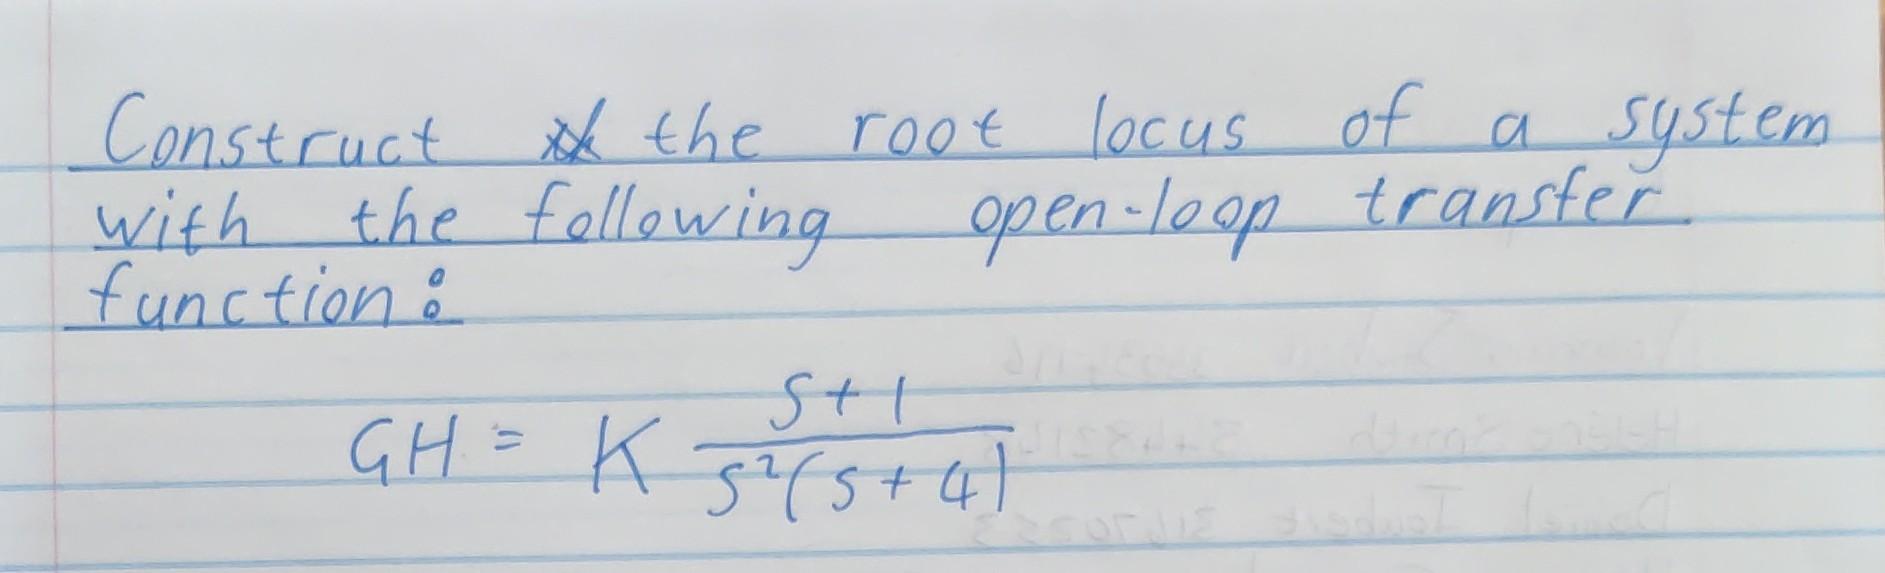 Construct the root locus of a system
with the following open-loop transfer
function:
GH = K \frac{s+1}{s^2(s+4)}